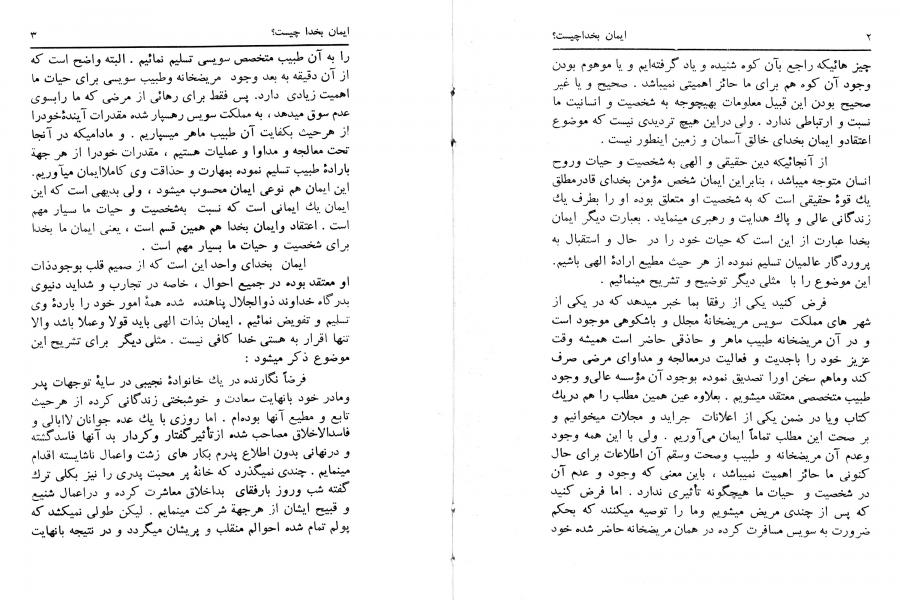 ۲ ایمان بخداچیست؟
چیز هائیکه راجع بآن کوه شنیده و یاد گرفته‌ایم و یا موهوم بودن
وجود آن کوه هم برای ما حائز اهمیتی نمیباشد . صحیح و یا غیر
صحیح بودن این قبیل معلومات بهیچوجه به شخصیت و انسانیت ما
نسبت و ارتباطی ندارد . ولی دراین هیچ تردیدی نیست که موضوع
اعتقادو ایمان بخدای خالق آسمان و زمین اینطور نیست .
از آنجائیکه دین حقیقی و الهی به شخصیت و حیات وروح
انسان متوجه میباشد ، بنابراین ایمان شخص مؤمن بخدای قادرمطلق
یك قوۀ حقیقی است که به شخصیت او متعلق بوده او را بطرف یك
زندگانی عالی و پاك هدایت و رهبری مینماید . بعبارت دیگر ایمان
بخدا عبارت از این است که حیات خود را در حال و استقبال به
پروردگار عالمیان تسلیم نموده از هر حیث مطیع ارادۀ الهی باشیم.
این موضوع را با مثلی دیگر توضیح و تشریح مینمائیم .
فرض کنید یکی از رفقا بما خبر میدهد که در یکی از
شهر های مملکت سویس مریضخانۀ مجلل و باشکوهی موجود است
و در آن مریضخانه طبیب ماهر و حاذقی حاضر است همیشه وقت
عزیز خود را باجدیت و فعالیت درمعالجه و مداوای مرضی صرف
کند وماهم سخن اورا تصدیق نموده بوجود آن مؤسسه عالی‌و وجود
طبیب متخصصی معتقد میشویم . بعلاوه عین همین مطلب را هم دریك
کتاب ویا در ضمن یکی از اعلانات جراید و مجلات میخوانیم و
بر صحت این مطلب تماماً ایمان می‌آوریم . ولی با این همه وجود
وعدم آن مریضخانه و طبیب وصحت وسقم آن اطلاعات برای حال
کنونی ما حائز اهمیت نمیباشد ، باین معنی که وجود و عدم آن
در شخصیت و حیات ما هیچگونه تأثیری ندارد . اما فرض کنید
که پس از چندی مریض میشویم وما را توصیه میکنند که بحکم
ضرورت به سویس مسافرت کرده در همان مریضخانه حاضر شده خود
ایمان بخدا چیست؟ ۳
را به آن طبیب متخصص سویسی تسلیم نمائیم . البته واضح است که
از آن دقیقه به بعد وجود مریضخانه وطبیب سویسی برای حیات ما
اهمیت زیادی دارد. پس فقط برای رهائی از مرضی که ما رابسوی
عدم سوق میدهد ، به مملکت سویس رهسپار شده مقدرات آیندۀخودرا
از هرحیث بکفایت آن طبیب ماهر میسپاریم . و مادامیکه در آنجا
تحت معالجه و مداوا و عملیات هستیم ، مقدرات خودرا از هر جهة
بارادۀ طبیب تسلیم نموده بمهارت و حذاقت وی کاملاایمان میآوریم.
این ایمان هم نوعی ایمان محسوب میشود ، ولی بدیهی است که این
ایمان یك ایمانی است که نسبت به‌شخصیت و حیات ما سیار مهم
است . اعتقاد وایمان بخدا هم همین قسم است ، یعنی ایمان ما بخدا
برای شخصیت و حیات ما بسیار مهم است .
ایمان بخدای واحد این است که از صمیم قلب بوجودذات
او معتقد بوده در جمیع احوال ، خاصه در تجارب و شداید دنیوی
بدرگاه خداوند ذوالجلال پناهنده شده همۀ امور خود را باردۀ وی
تسلیم و تفویض نمائیم . ایمان بذات الهی باید قولا وعملا باشد والا
تنها اقرار به هستی خدا کافی نیست . مثلی دیگر برای تشریح این
موضوع ذکر میشود :
فرضاً نگارنده در یك خانوادۀ نجیبی در سایۀ توجهات پدر
ومادر خود بانهایت سعادت و خوشبختی زندگانی کرده از هرحیث
تابع و مطیع آنها بوده‌ام . اما روزی با یك عده جوانان لاابالی و
فاسدالاخلاق مصاحب شده ازتأثیرگفتار وکردار بد آنها فاسدگشته
و درنهانی بدون اطلاع پدرم بکار های زشت واعمال ناشایسته اقدام
مینمایم . چندی نمیگذرد که خانۀ پر محبت پدری را نیز بکلی ترك
گفته شب وروز بارفقای بداخلاق معاشرت کرده و دراعمال شنیع
و قبیح ایشان از هرجهة شرکت مینمایم . لیکن طولی نمیکشد که
پولم تمام شده احوالم منقلب و پریشان میگردد و در نتیجه بانهایت